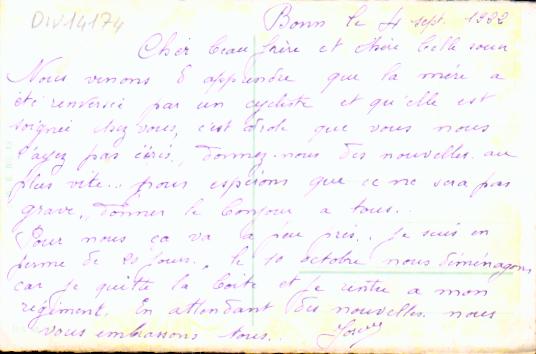 DIV14174
Bonn le 4 sept. 1922
Cher beau frère et chère belle sœur
Nous venons d apprendre que la mère a
été renversée par un cycliste et qu'elle est
soignée chez vous, c'est drôle que vous nous
l'ayez pas écris, donnez-nous des nouvelles au
plus vite.. nous espérons que ce ne sera pas
grave, donner le bonjour a tous..
Pour nous ça va à peu près.. je suis en
perme de 20 jours, le 10 octobre nous déménageons
car je quitte la boite et je rentre a mon
régiment. En attendant des nouvelles nous
vous embrassons tous..